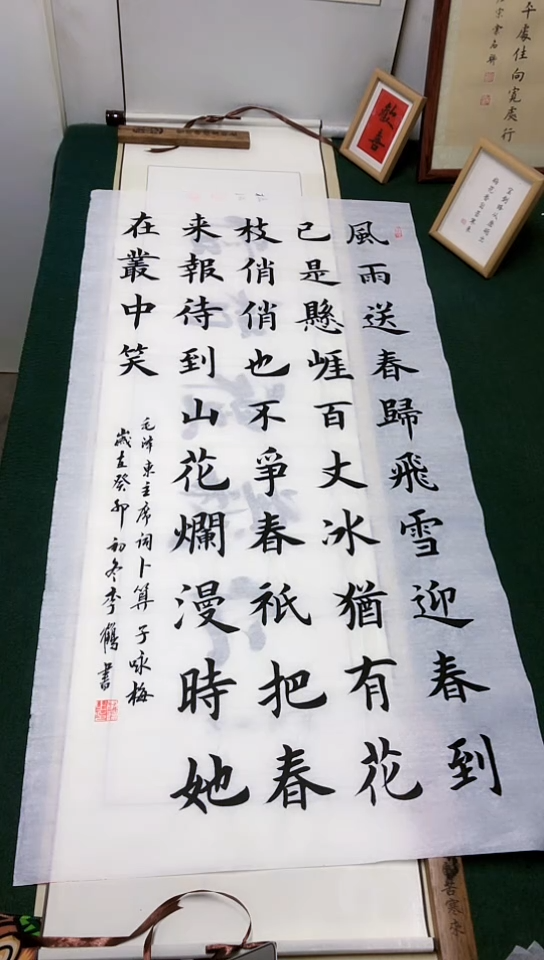 風雨送春歸飛雪迎春到
已是懸崕百丈冰猶有花
枝俏俏也不爭春祇把春
来報待到山花爛漫時她
在叢中笑
毛泽東主席词卜算子咏梅
歲在癸卯初冬李鶴書
歡喜
處住向寬處行
苦寒来